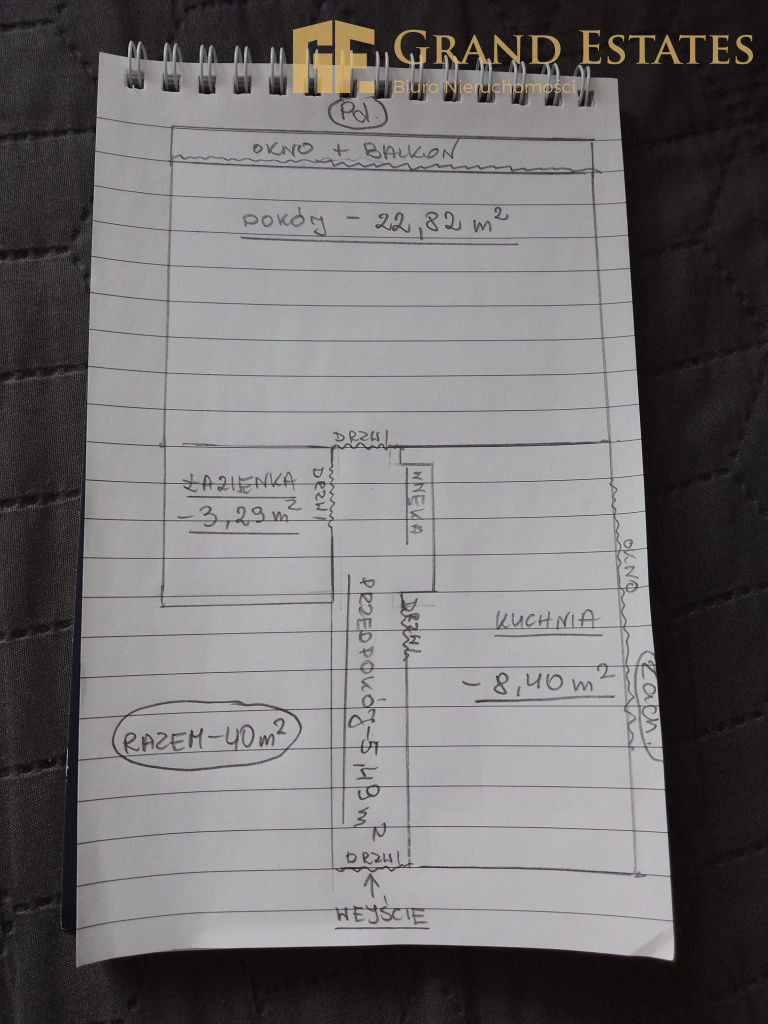 GRAND ESTATES
Biuro Nieruchomości
Pd.
OKNO + BALKON
POKÓJ - 22,82 m²
DRZWI
ŁAZIENKA
- 3,29 m²
DRZWI
WNĘKA
OKNO
DRZWI
PRZEDPOKÓJ - 5,49 m²
KUCHNIA
- 8,40 m²
Zach.
RAZEM - 40 m²
DRZWI
WEJŚCIE